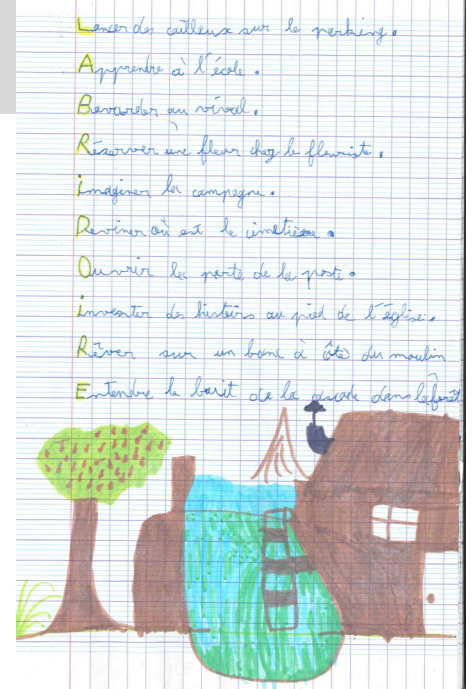 Lancer des cailleux sur le parking.
Apprendre à l'école.
Bavarder au vival.
Réserver une fleur chez le fleuriste.
imaginer la campagne.
Deviner où est le cimetière.
Ouvrir la porte de la poste.
inventer des histoirs au pied de l'église.
Rêver sur un banc à côté du moulin
Entendre le bruit de la cascade dans la forêt